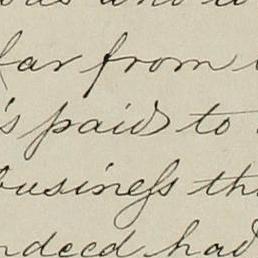 far from
is paid to
business th
ndeed had